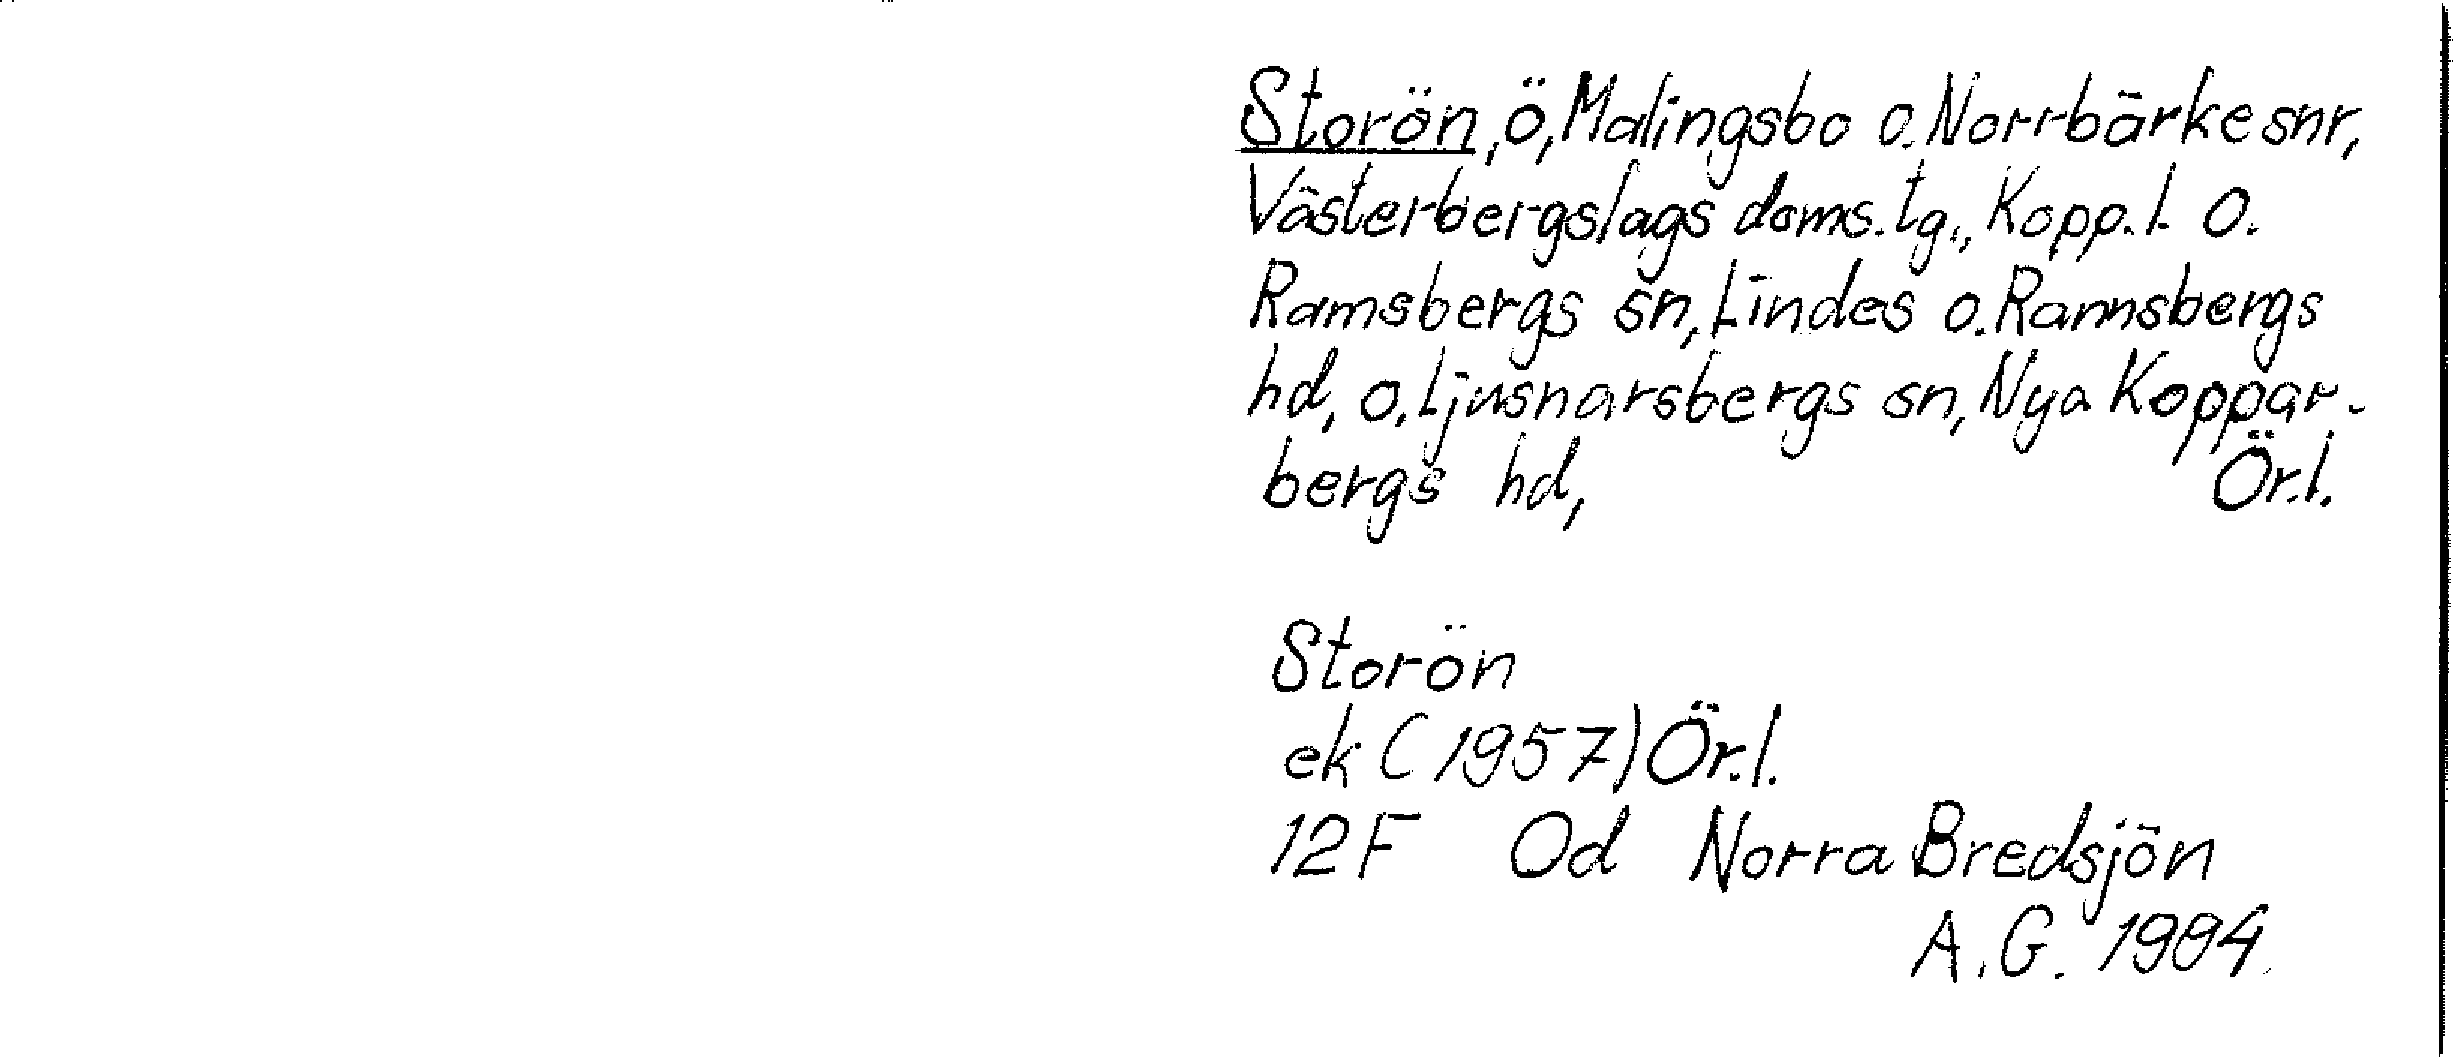 Storön, ö, Malingsbo o. Norrbärke snr,
Västerbergslags doms. tg., Kopp. l. o.
Ramsbergs sn, Lindes o. Ramsbergs
hd, o. Ljusnarsbergs sn, Nya Koppar-
bergs hd, Ör.l.
Storön
ek (1957) Ör.l.
12F Od Norra Bredsjön
A.G. 1984